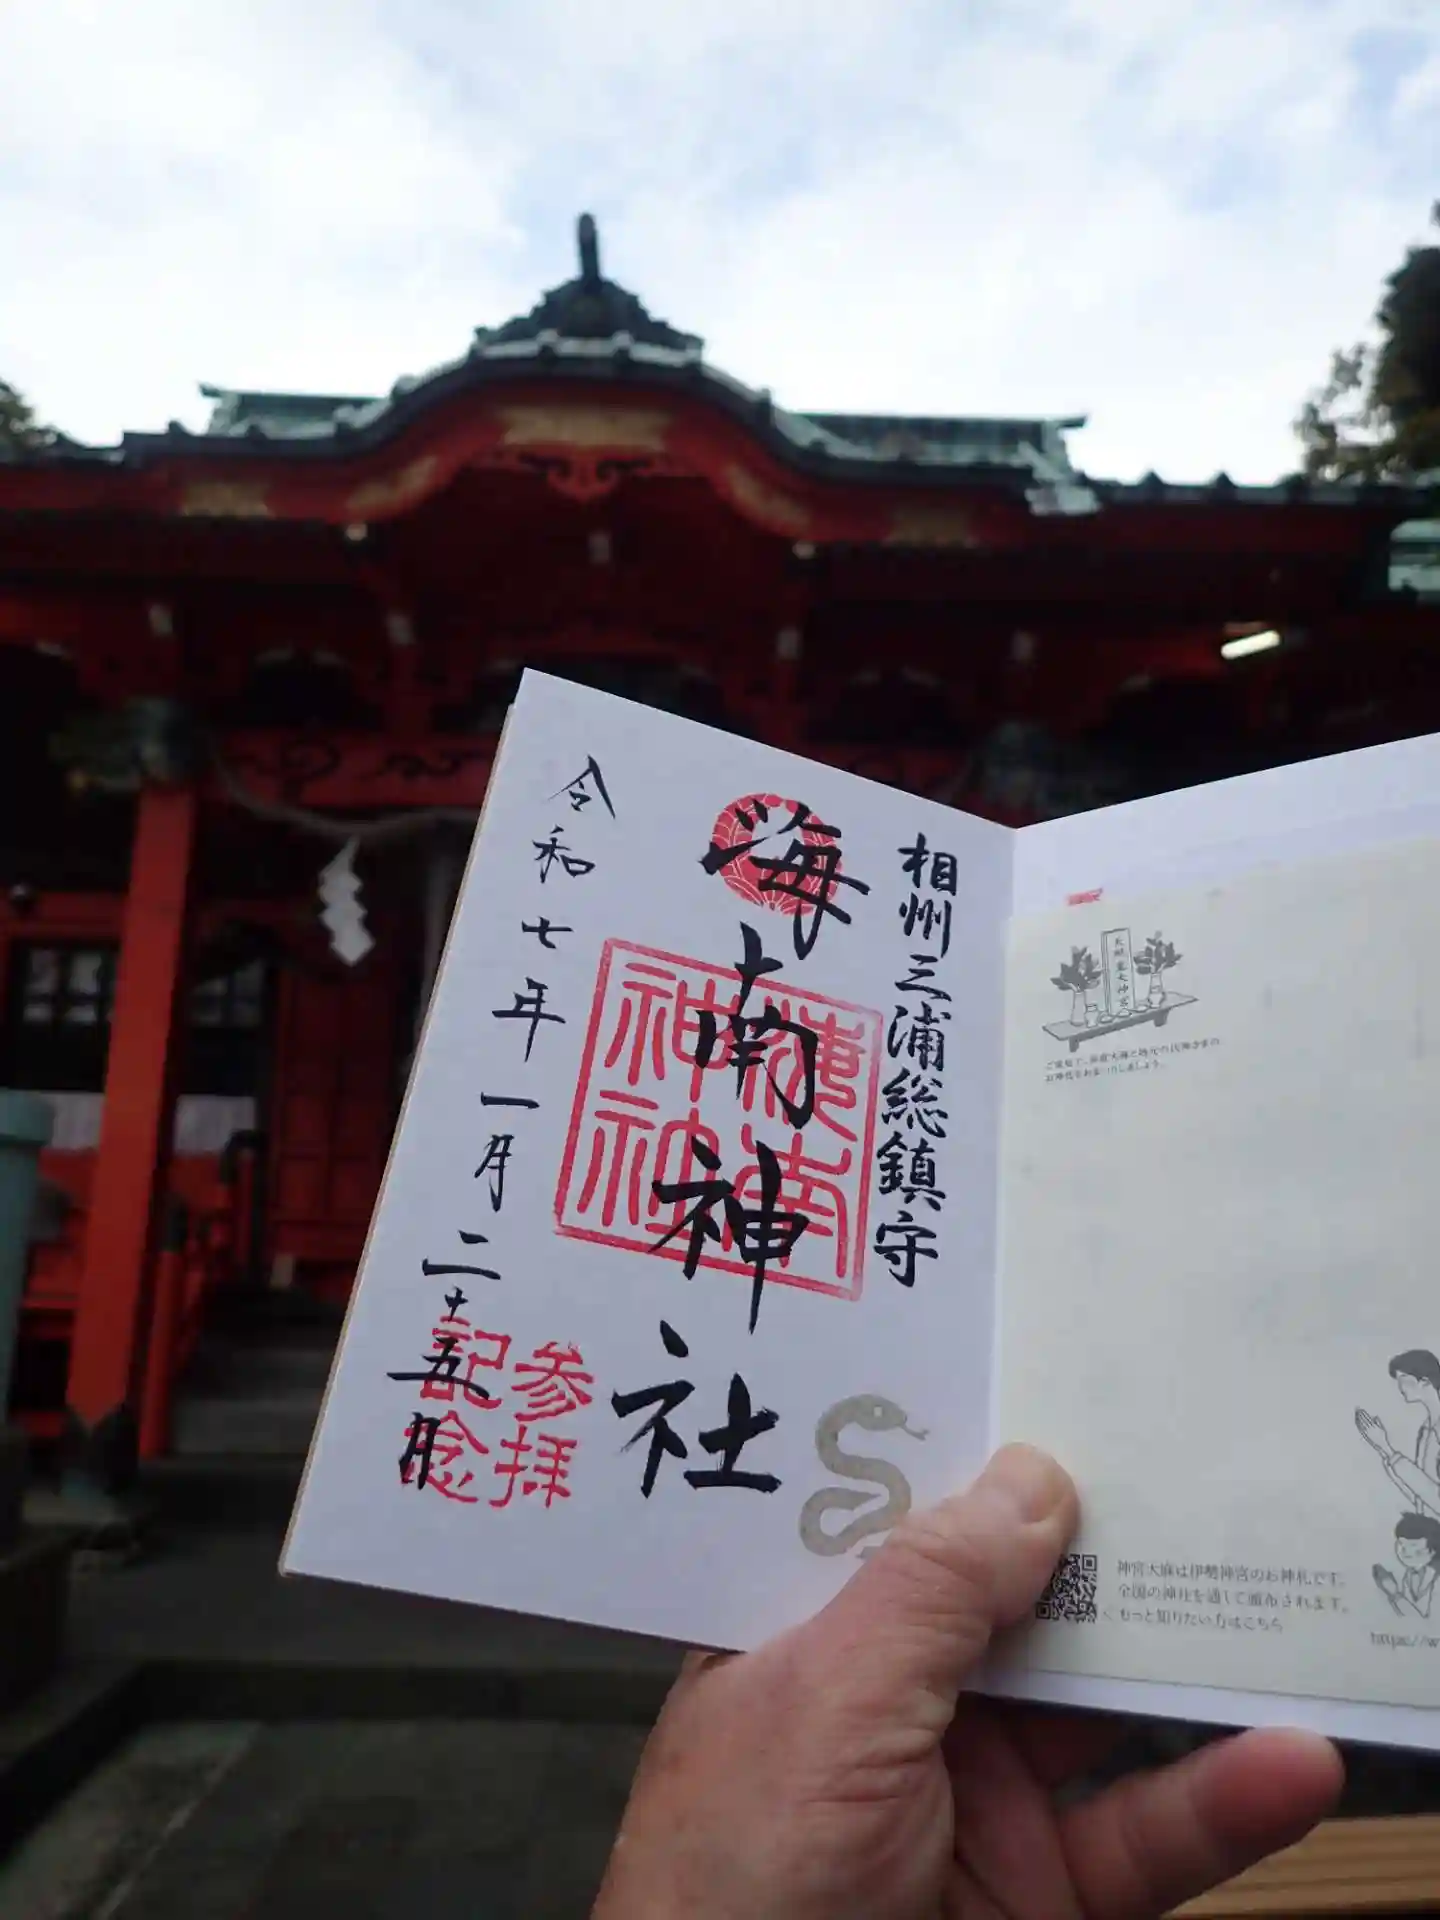 相州三浦総鎮守
海南神社
海南神社
令和七年一月二十五日
参拝
記念
天照皇大神宮
ご家庭で、神宮大麻と地元の氏神さまの
お神札をおまつりしましょう。
神宮大麻は伊勢神宮のお神札です。
全国の神社を通して頒布されます。
もっと知りたい方はこちら
https://w